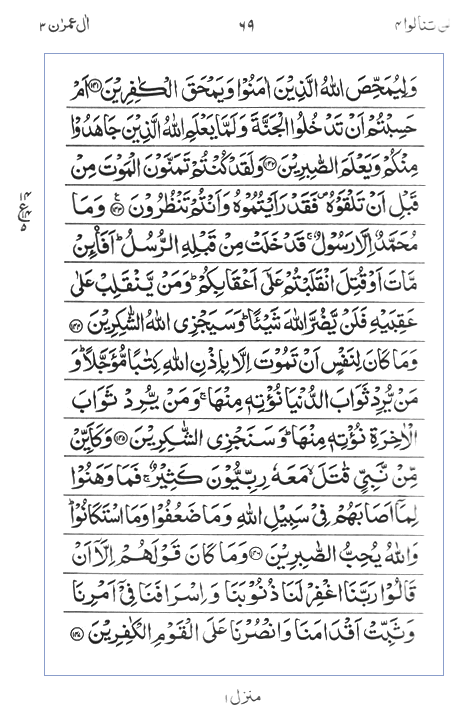 لن تنالوا ۴ ۶۹ اٰل عمرٰن ۳
وَلِيُمَحِّصَ اللّٰهُ الَّذِيْنَ اٰمَنُوْا وَيَمْحَقَ الْكٰفِرِيْنَ ﴿۱۴۱﴾ اَمْ
حَسِبْتُمْ اَنْ تَدْخُلُوا الْجَنَّةَ وَلَمَّا يَعْلَمِ اللّٰهُ الَّذِيْنَ جَاهَدُوْا
مِنْكُمْ وَيَعْلَمَ الصّٰبِرِيْنَ ﴿۱۴۲﴾ وَلَقَدْ كُنْتُمْ تَمَنَّوْنَ الْمَوْتَ مِنْ
قَبْلِ اَنْ تَلْقَوْهُ ۪ فَقَدْ رَاَيْتُمُوْهُ وَاَنْتُمْ تَنْظُرُوْنَ ﴿۱۴۳﴾ ع وَمَا
۱۴
ع ۱۴
۵
مُحَمَّدٌ اِلَّا رَسُوْلٌ ۚ قَدْ خَلَتْ مِنْ قَبْلِهِ الرُّسُلُ ؕ اَفَا۟ئِنْ
مَّاتَ اَوْ قُتِلَ انْقَلَبْتُمْ عَلٰٓى اَعْقَابِكُمْ ؕ وَمَنْ يَّنْقَلِبْ عَلٰى
عَقِبَيْهِ فَلَنْ يَّضُرَّ اللّٰهَ شَيْـًٔا ؕ وَسَيَجْزِى اللّٰهُ الشّٰكِرِيْنَ ﴿۱۴۴﴾
وَمَا كَانَ لِنَفْسٍ اَنْ تَمُوْتَ اِلَّا بِاِذْنِ اللّٰهِ كِتٰبًا مُّؤَجَّلًا ؕ وَ
مَنْ يُّرِدْ ثَوَابَ الدُّنْيَا نُؤْتِهٖ مِنْهَا ۚ وَمَنْ يُّرِدْ ثَوَابَ
الْاٰخِرَةِ نُؤْتِهٖ مِنْهَا ؕ وَسَنَجْزِى الشّٰكِرِيْنَ ﴿۱۴۵﴾ وَكَاَيِّنْ
مِّنْ نَّبِىٍّ قٰتَلَ ۙ مَعَهٗ رِبِّيُّوْنَ كَثِيْرٌ ۚ فَمَا وَهَنُوْا
لِمَاۤ اَصَابَهُمْ فِىْ سَبِيْلِ اللّٰهِ وَمَا ضَعُفُوْا وَمَا اسْتَكَانُوْا ؕ
وَاللّٰهُ يُحِبُّ الصّٰبِرِيْنَ ﴿۱۴۶﴾ وَمَا كَانَ قَوْلَهُمْ اِلَّاۤ اَنْ
قَالُوْا رَبَّنَا اغْفِرْ لَنَا ذُنُوْبَنَا وَاِسْرَافَنَا فِىْۤ اَمْرِنَا
وَثَبِّتْ اَقْدَامَنَا وَانْصُرْنَا عَلَى الْقَوْمِ الْكٰفِرِيْنَ ﴿۱۴۷﴾
منزل ۱